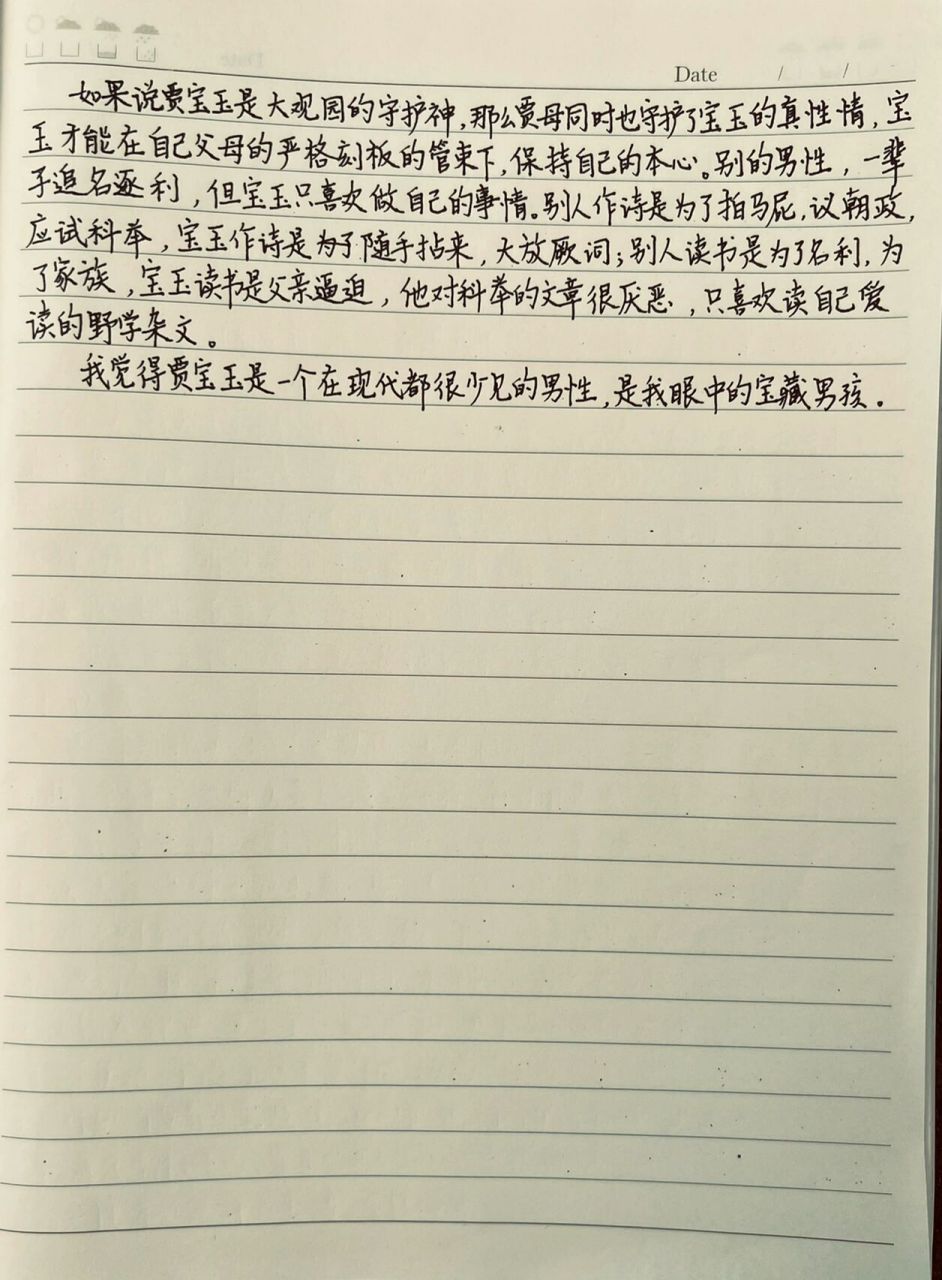 Date / /
如果说贾宝玉是大观园的守护神,那么贾母同时也守护了宝玉的真性情,宝
玉才能在自己父母的严格刻板的管束下,保持自己的本心。别的男性,一辈
子追名逐利,但宝玉只喜欢做自己的事情。别人作诗是为了拍马屁,议朝政,
应试科举,宝玉作诗是为了随手拈来,大放厥词;别人读书是为了名利,为
了家族,宝玉读书是父亲逼迫,他对科举的文章很厌恶,只喜欢读自己爱
读的野学杂文。
我觉得贾宝玉是一个在现代都很少见的男性,是我眼中的宝藏男孩。